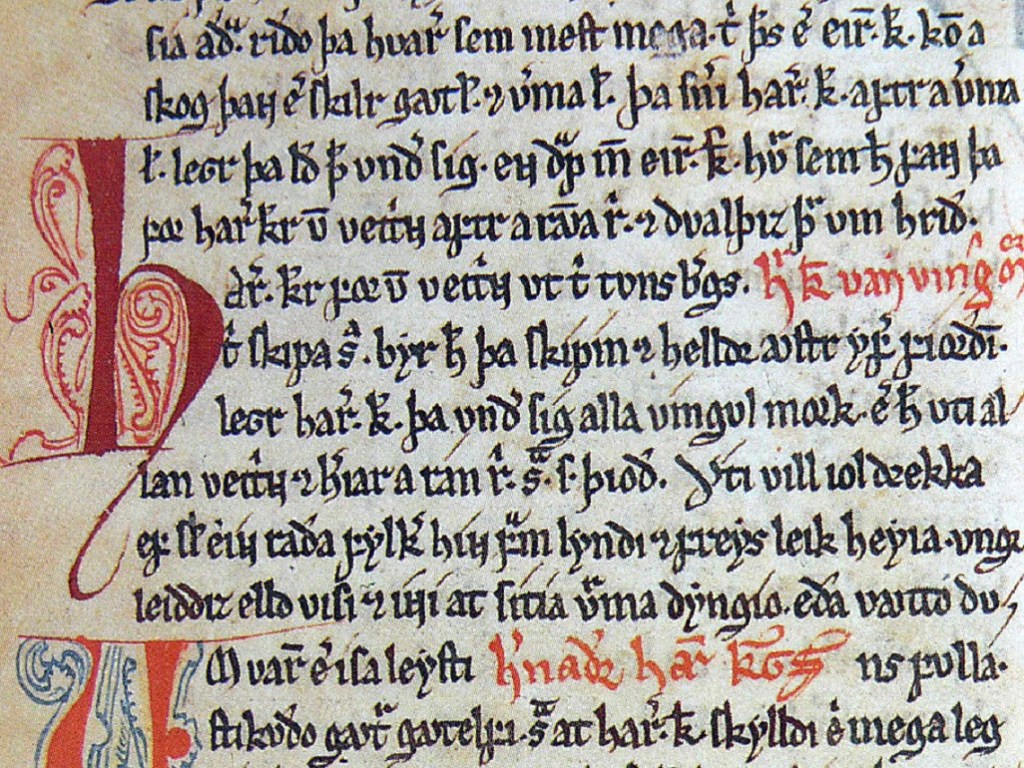 sia adꝛ. rido þa huar̄ sem meſt mega. t̄ þs ē eir̄. k̄. kō a
ſkog þan ē ſkilr gautl̄. ⁊ v̄mal̄. þa ſn̄i har̄. k̄. aptr a v̄ma
l̄. legr þa ld̄ þ̄ vnd̄ ſig. en dp̄ m̄ eir̄. k̄. hv̄ſem h̄ fan þa
for har̄ kr̄ v̄ vett̄n aptr a rāa r̄. ⁊ dvalþiz þ̄ vm hrið.
dr̄. kr̄ for v̄ vett̄n vt t̄ tvnsb̄gs. h̄ k̄ van vinḡ
t̄ ſkipa s̄. byr h̄ þa ſkipin ⁊ helldr auſtr yf̄ fiordī.
legr har̄. k̄. þa vnd̄ ſig alla vingul mork. ē h̄ vti al
lan vett̄n ⁊ h̄iar a ran r̄. s̄. ſ. þiod̄. Vti vill iol drekka
ef ſl̄ ēin rada fylk̄ hin fm̄ lyndi ⁊ freys leik heyia. vngr
leiddiz elld viſi ⁊ iñi at ſitia v̄ma dyngio. eda vautto dv
M var̄ ē iſa leyſti h̄nadr har̄ kgs ns fulla.
ſtikvdo gaut̄ gautelfi. s̄ at har̄. k̄. ſkylldi ē mega leg